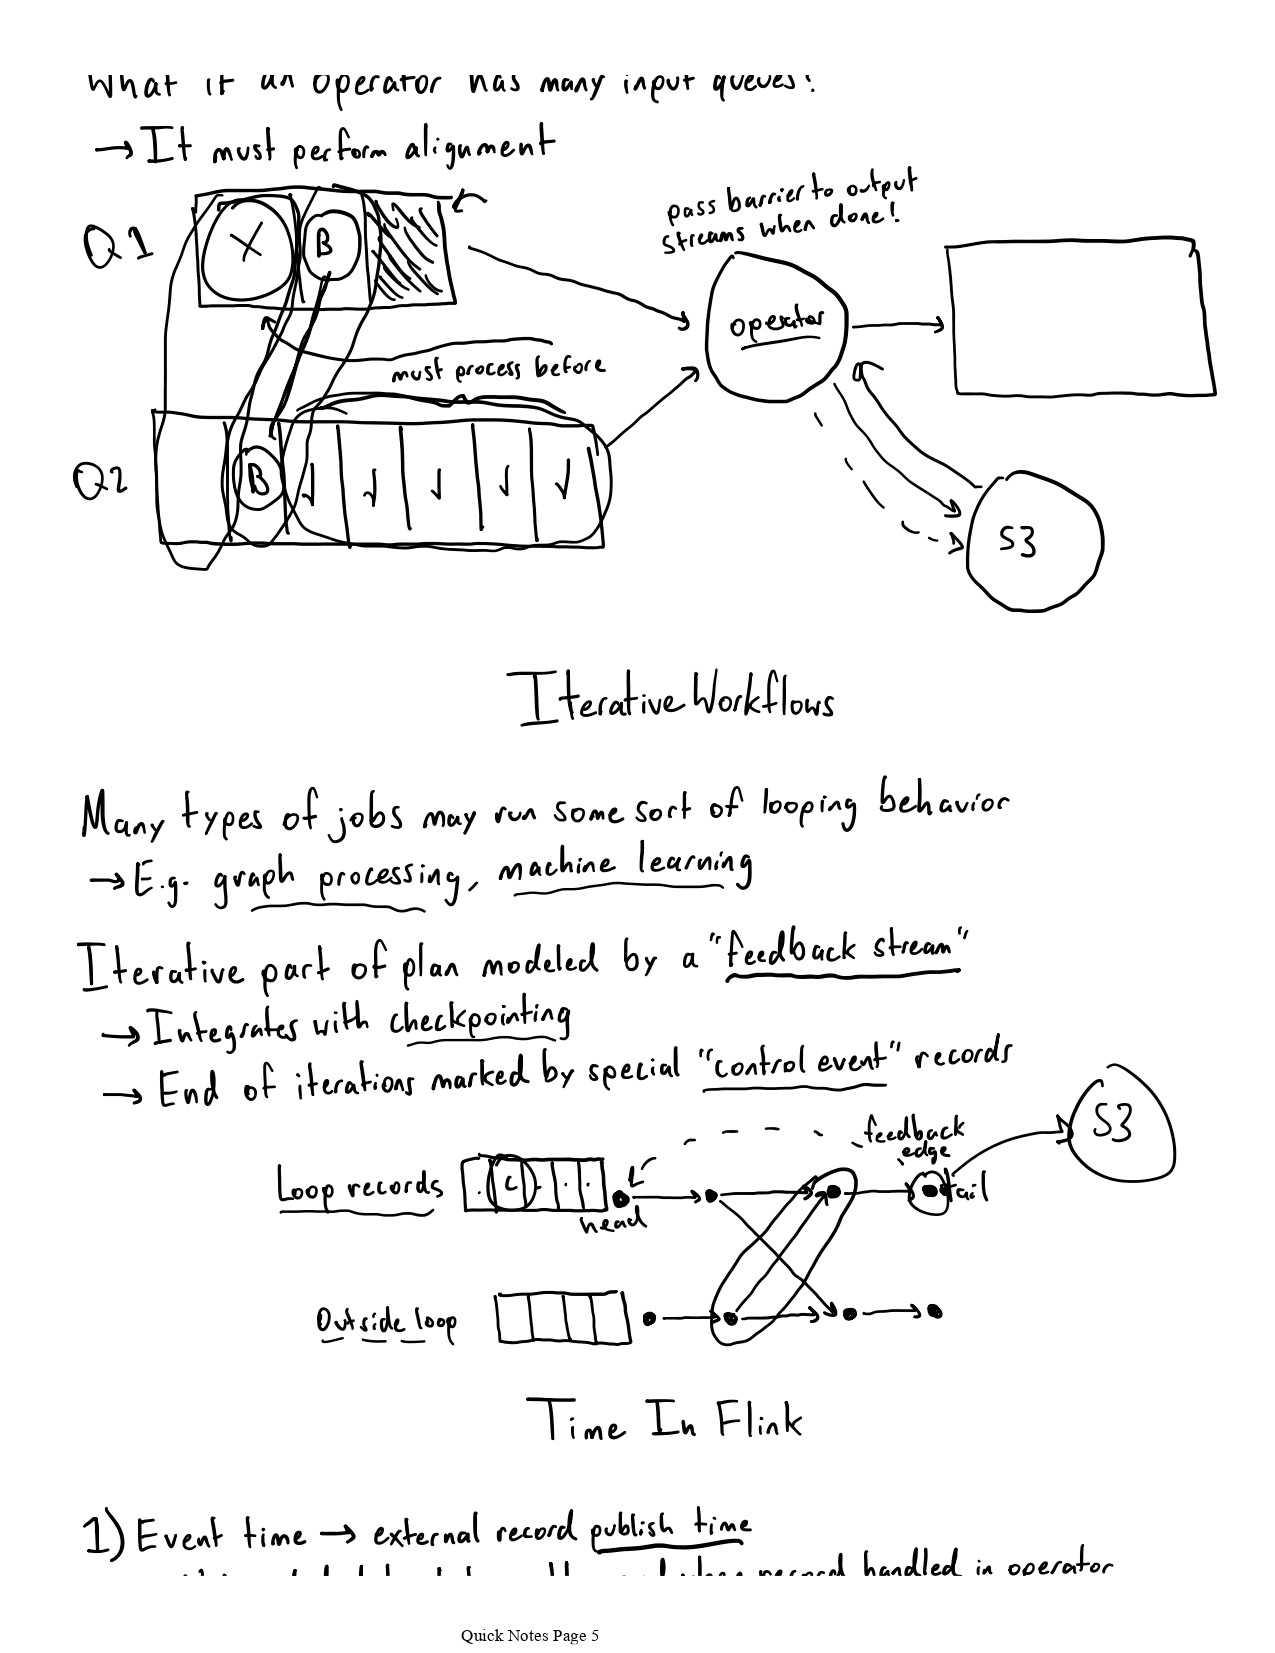 What if an operator has many input queues?
→ It must perform alignment
pass barrier to output
streams when done!
Q1
X
B
operator
must process before
Q2
B
✓ ✓ ✓ ✓ ✓
S3
Iterative Workflows
Many types of jobs may run some sort of looping behavior
→ E.g. graph processing, machine learning
Iterative part of plan modeled by a "feedback stream"
→ Integrates with checkpointing
→ End of iterations marked by special "control event" records
S3
feedback
edge
Loop records
C
head
tail
Outside loop
Time In Flink
1) Event time → external record publish time
record handled in operator
Quick Notes Page 5